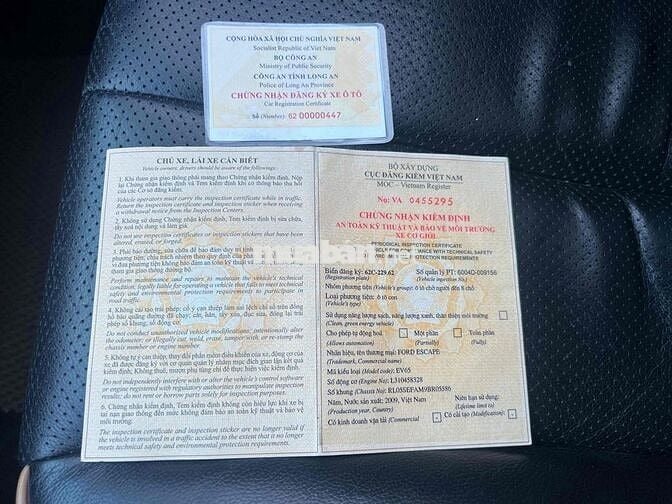 CỘNG HÒA XÃ HỘI CHỦ NGHĨA VIỆT NAM
Socialist Republic of Viet Nam
BỘ CÔNG AN
Ministry of Public Security
CÔNG AN TỈNH LONG AN
Police of Long An Province
CHỨNG NHẬN ĐĂNG KÝ XE Ô TÔ
Car Registration Certificate
Số (Number): 62 00000447
CHỦ XE, LÁI XE CẦN BIẾT
Vehicle owners, drivers should be aware of the followings:
1. Khi tham gia giao thông phải mang theo Chứng nhận kiểm định. Nộp
lại Chứng nhận kiểm định và Tem kiểm định khi có thông báo thu hồi
của các Cơ sở đăng kiểm.
Vehicle operators must carry the inspection certificate while in traffic.
Return the inspection certificate and inspection sticker when receiving
a withdrawal notice from the Inspection Centers.
2. Không sử dụng Chứng nhận kiểm định, Tem kiểm định bị sửa chữa,
tẩy xoá nội dung và làm giả.
Do not use inspection certificates or inspection stickers that have
been altered, erased, or forged.
3. Phải bảo dưỡng, sửa chữa để bảo đảm duy trì tình
phương tiện; chịu trách nhiệm theo quy định của
đưa phương tiện không bảo đảm an toàn kỹ thuật và
tham gia giao thông đường bộ.
Perform maintenance and repairs to maintain the vehicle's technical
condition; legally liable for operating a vehicle that fails to meet technical
safety and environmental protection requirements to participate in
road traffic.
4. Không cải tạo trái phép; cố ý can thiệp làm sai lệch chỉ số trên đồng
hồ báo quãng đường đã chạy; cắt, hàn, tẩy xóa, đục sửa, đóng lại trái
phép số khung, số động cơ.
Do not conduct unauthorized vehicle modification, intentionally alter the
odometer; or illegally cut, weld, erase, tamper with, or re-stamp the
chassis number or engine number.
5. Không tự ý can thiệp, thay đổi phần mềm điều khiển của xe, động cơ của
xe đã được đăng ký với cơ quan quản lý nhằm mục đích gian lận kết quả
kiểm định. Không thuê, mượn phụ tùng chỉ để thực hiện việc kiểm định.
Do not independently interfere with or alter the vehicle's control software
or engine registered with regulatory authorities to manipulate inspection
results; do not rent or borrow parts solely for inspection purposes.
6. Chứng nhận kiểm định, Tem kiểm định không còn hiệu lực khi xe bị
tai nạn giao thông đến mức không đảm bảo an toàn kỹ thuật và bảo vệ
môi trường.
The inspection certificate and inspection sticker are no longer valid if
the vehicle is involved in a traffic accident to the extent that it no longer
meets technical safety and environmental protection requirements.
BỘ XÂY DỰNG
CỤC ĐĂNG KIỂM VIỆT NAM
MOC – Vietnam Register
No: VA 0455295
CHỨNG NHẬN KIỂM ĐỊNH
AN TOÀN KỸ THUẬT VÀ BẢO VỆ MÔI TRƯỜNG
XE CƠ GIỚI
PERIODICAL INSPECTION CERTIFICATE
WITH TECHNICAL SAFETY
PROTECTION REQUIREMENTS
Biển đăng ký: 62C-229.62
(Registration plate)
Số quản lý PT: 6004D-009156
(Vehicle inspection No)
Nhóm phương tiện (Vehicle's group): ô tô chở người đến 8 chỗ
Loại phương tiện: ô tô con
(Vehicle's type)
Sử dụng năng lượng sạch, năng lượng xanh, thân thiện môi trường
(Clean, green energy vehicle)
Cho phép tự động hoá
(Allows automation)
Một phần
(Partially)
Toàn phần
(Fully)
Nhãn hiệu, tên thương mại: FORD ESCAPE
(Trademark, Commercial name)
Mã kiểu loại (Model code): EV65
Số động cơ (Engine No): L310458328
Số khung (Chassis No): RL05SEFAM9BR05586
Năm, Nước sản xuất: 2009, Việt Nam
(Production year, Country)
Niên hạn sử dụng:
(Lifetime limit to)
Có kinh doanh vận tải (Commercial
Có cải tạo (Modification):
muaban.net